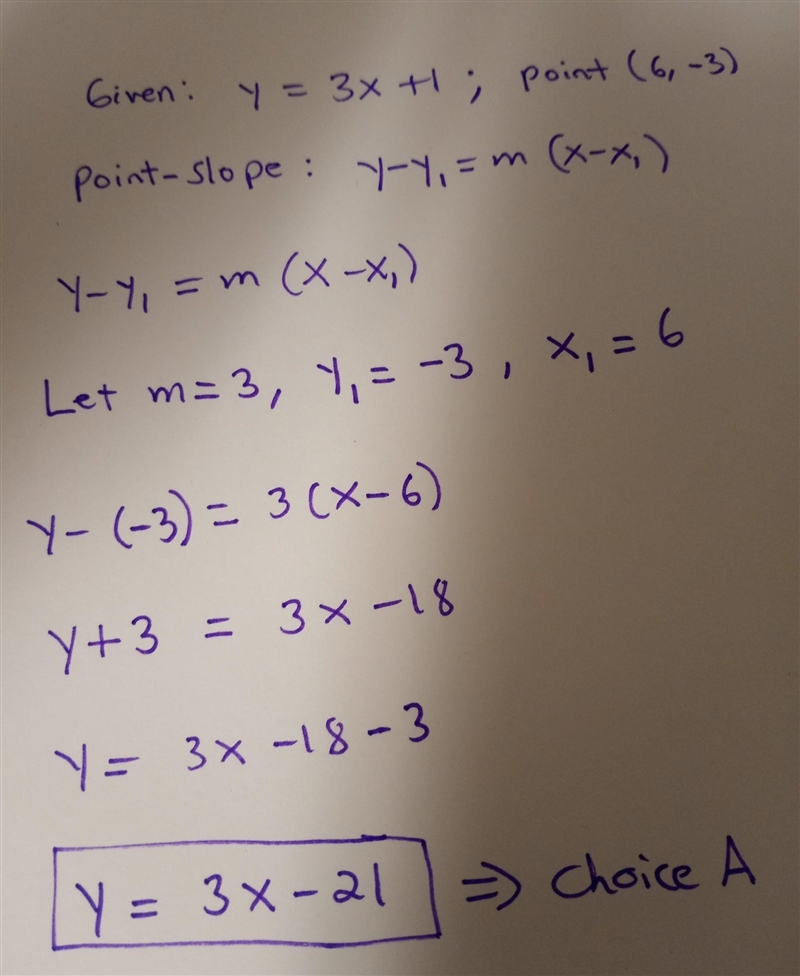 Given: y = 3x +1 ; point (6, -3)
point-slope : y-y₁ = m (x-x₁)
y-y₁ = m (x -x₁)
Let m=3, y₁= -3 , x₁ = 6
y- (-3) = 3 (x- 6)
y+3 = 3x -18
y = 3x -18 -3
y = 3x - 21 ⇒ choice A